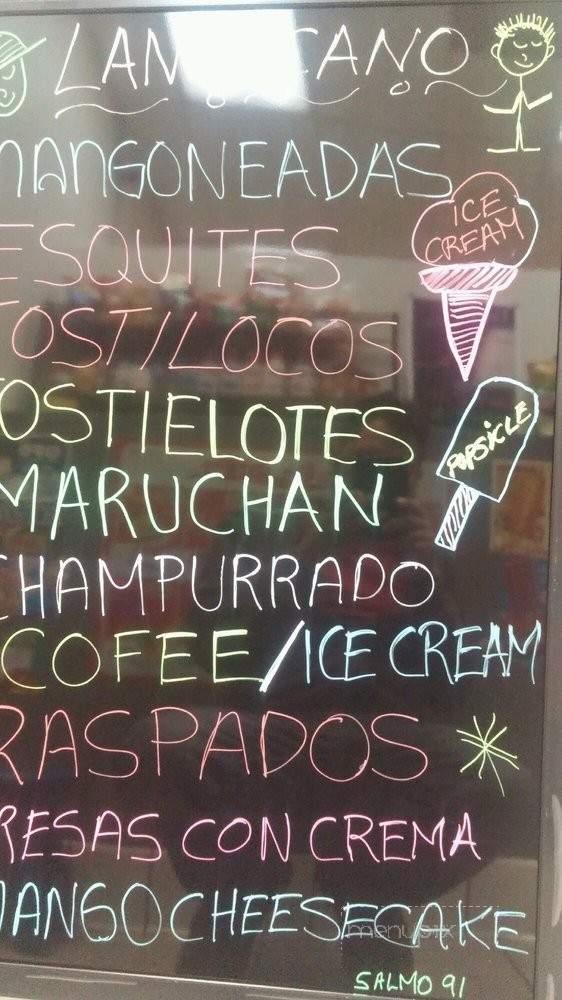 MANGONEADAS
ICE
CREAM
ESQUITES
TOSTILOCOS
TOSTIELOTES
POPSICLE
MARUCHAN
CHAMPURRADO
COFEE/ICE CREAM
RASPADOS
RESAS CON CREMA
MANGO CHEESECAKE
menupix
SALMO 91